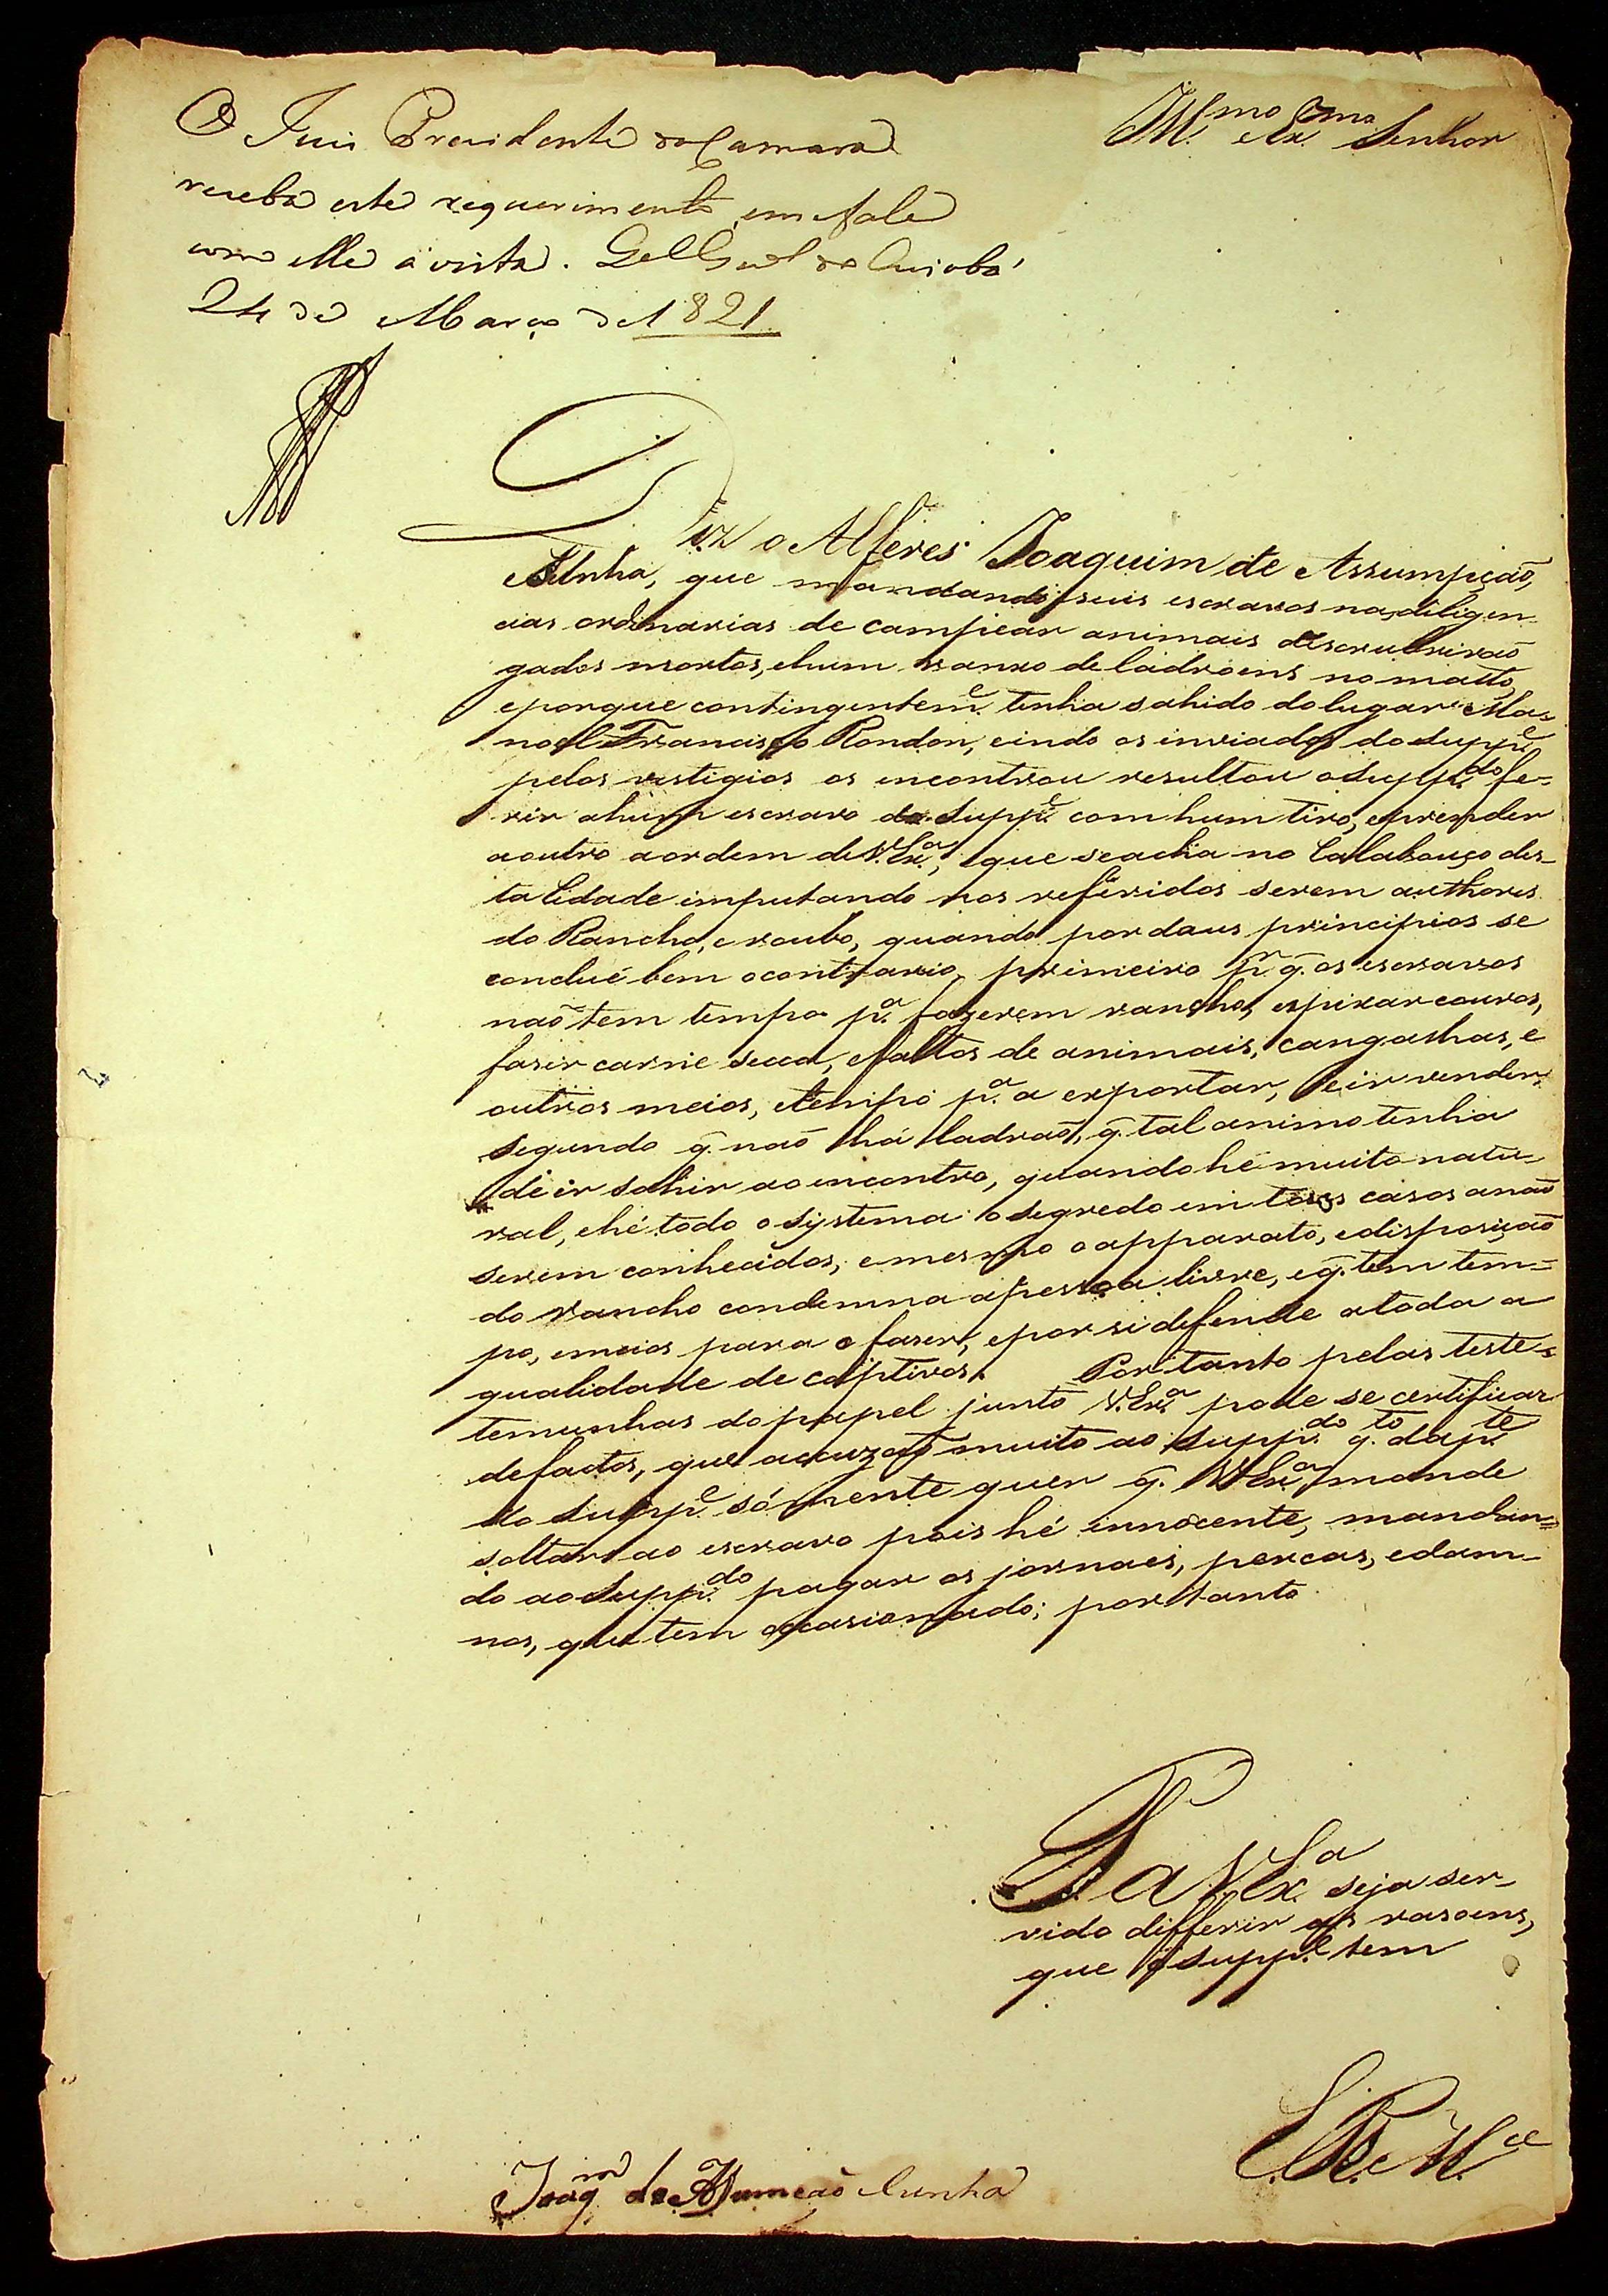 O Juis Prezidente da Camara
receba este requerimento, em fale
com elle à vista. Qel Gal do Cuiabá
24 de Março de 1821
Illmo e Exmo Senhor
Diz o Alferes Joaquim de Assumpição,
e Cunha, que mandando seus escravos nas diligen-
cias ordinarias de campiear animais descrubrirão
gados mortos, e hum ranxo de ládroens no matto,
e porque contingentem.e tinha sahido do lugar Ma-
noel Francisco Rondon, e indo os inviados do Supp.e
pelos vestigios os encontrou resultou o Supp.do fe-
rir a hum escravo do Supp.e com hum tiro, e prender
a outro a ordem de V. Ex.a, que se acha no Calabouço des-
ta Cidade imputando nos referidos serem authores
do Rancho, e roubo, quando por dous principios se
conclué bem o contrario, primeiro p.r q. os escravos
naõ tem tempo p.a fazerem rancho, espixar couros,
faser carne seca, e faltos de animais, cangalhas, e
outros meios, e tempo p.a a exportar, e ir vender,
segundo q. naõ há ladraõ, q. tal animo tenha
de ir sahir ao encontro, quando hé muito natu-
ral, e hé todo o systema o segredo em táes casos a naõ
serem conhecidos, e mesmo o apparato, e disposição
do rancho condemna a pessoa livre, e q. tem tem-
po, e meios para o faser, e por si defende a toda a
qualidade de captivos. Por tanto pelas teste-
temunhas do papel junto V. Ex.a pode se certificar
de factos, que acuzaõ muito ao Supp.do q.to da p.te
do Supp.e sómente quer q. V. Ex.a mande
soltar ao escravo pois hé innocente, mandan-
do ao Supp.do pagar os jornaes, percas, e dam-
nos, que tem occasionado; por tanto
P. a V. Ex.a seja ser-
vido differir as rasoens,
que o Supp.e tem
E. R. M.ce
Joaq.m de Assumcaõ Cunha